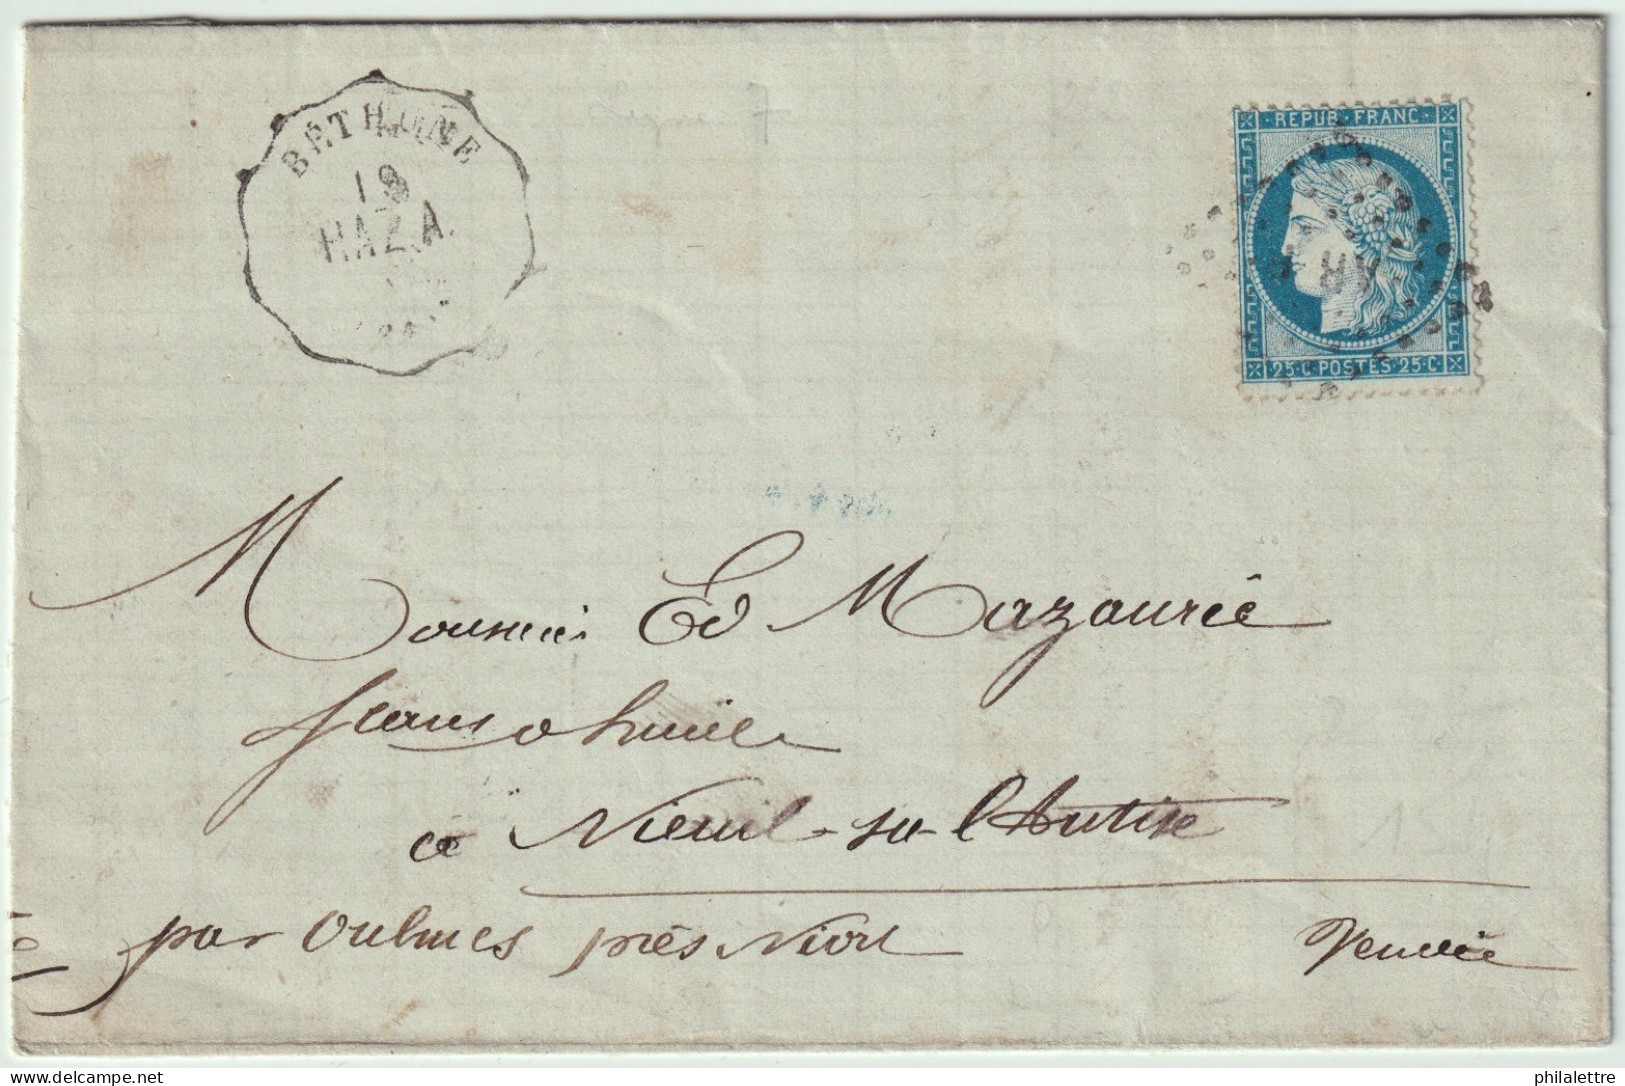 BÉTHUNE
19
HAZ.A.
REPUB·FRANC·
25·C·POSTES·25·C·
Monsieur Ed Mazaurié
à Nieuil-su-l'Autise
par Oulmes près Niort Vendée
delcampe.net
philalettre